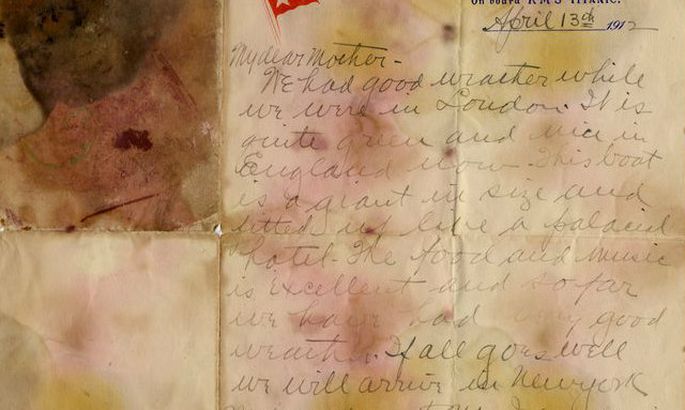 On board R.M.S. TITANIC.
April 13th 1912
My dear Mother-
We had good weather while
we were in London. It is
quite green and nice in
England now. This boat
is a giant in size and
fitted up like a palacial
hotel. The food and music
is excellent and so far
we have had very good
weather. If all goes well
we will arrive in New York